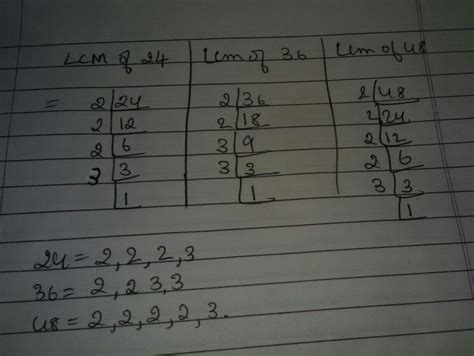 LCM of 24 Lcm of 36 Lcm of 48
= 2 24 2 36 2 48
2 12 2 18 2 24
2 6 3 9 2 12
3 3 3 3 2 6
1 1 3 3
1
24 = 2, 2, 2, 3
36 = 2, 2 3, 3
48 = 2, 2, 2, 2, 3.